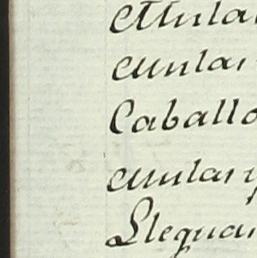 Mula
mular
Caballo
mular y
Llegua